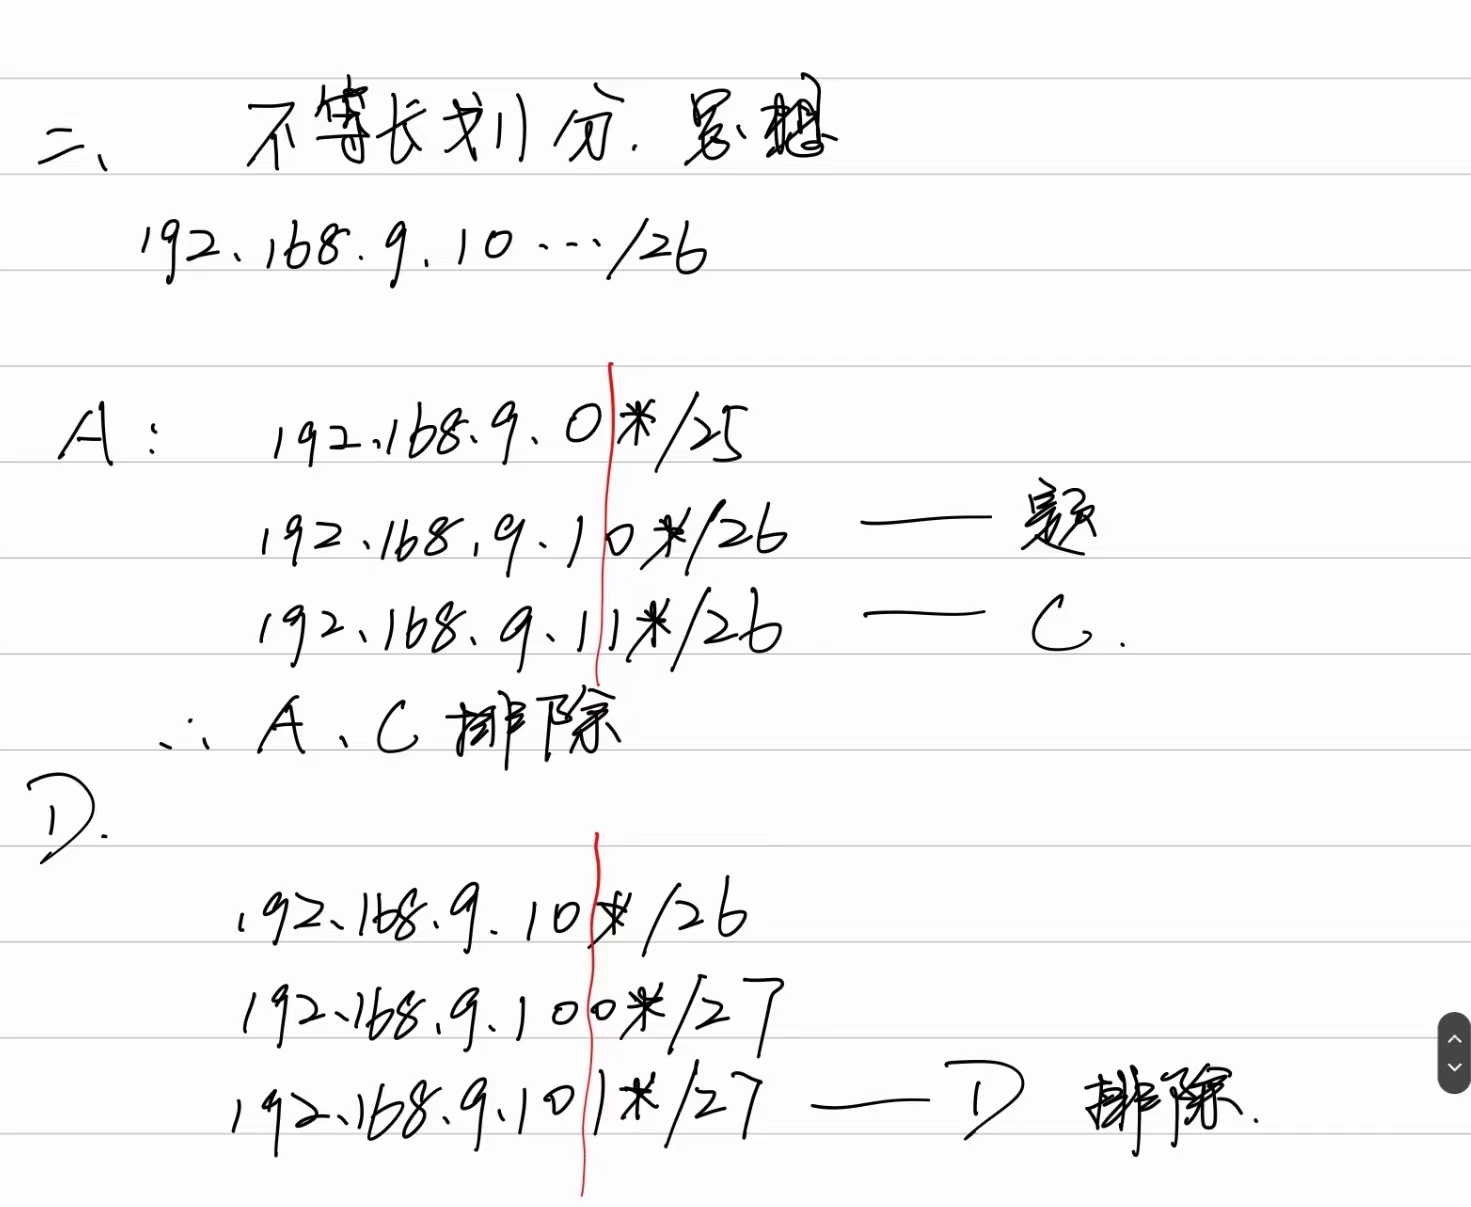 二、 不等长划分.思想
192.168.9.10···/26
A: 192.168.9.0*/25
192.168.9.10*/26 —— 题
192.168.9.11*/26 —— C.
∴ A、C 排除
D.
192.168.9.10*/26
192.168.9.100*/27
192.168.9.101*/27 —— D 排除.